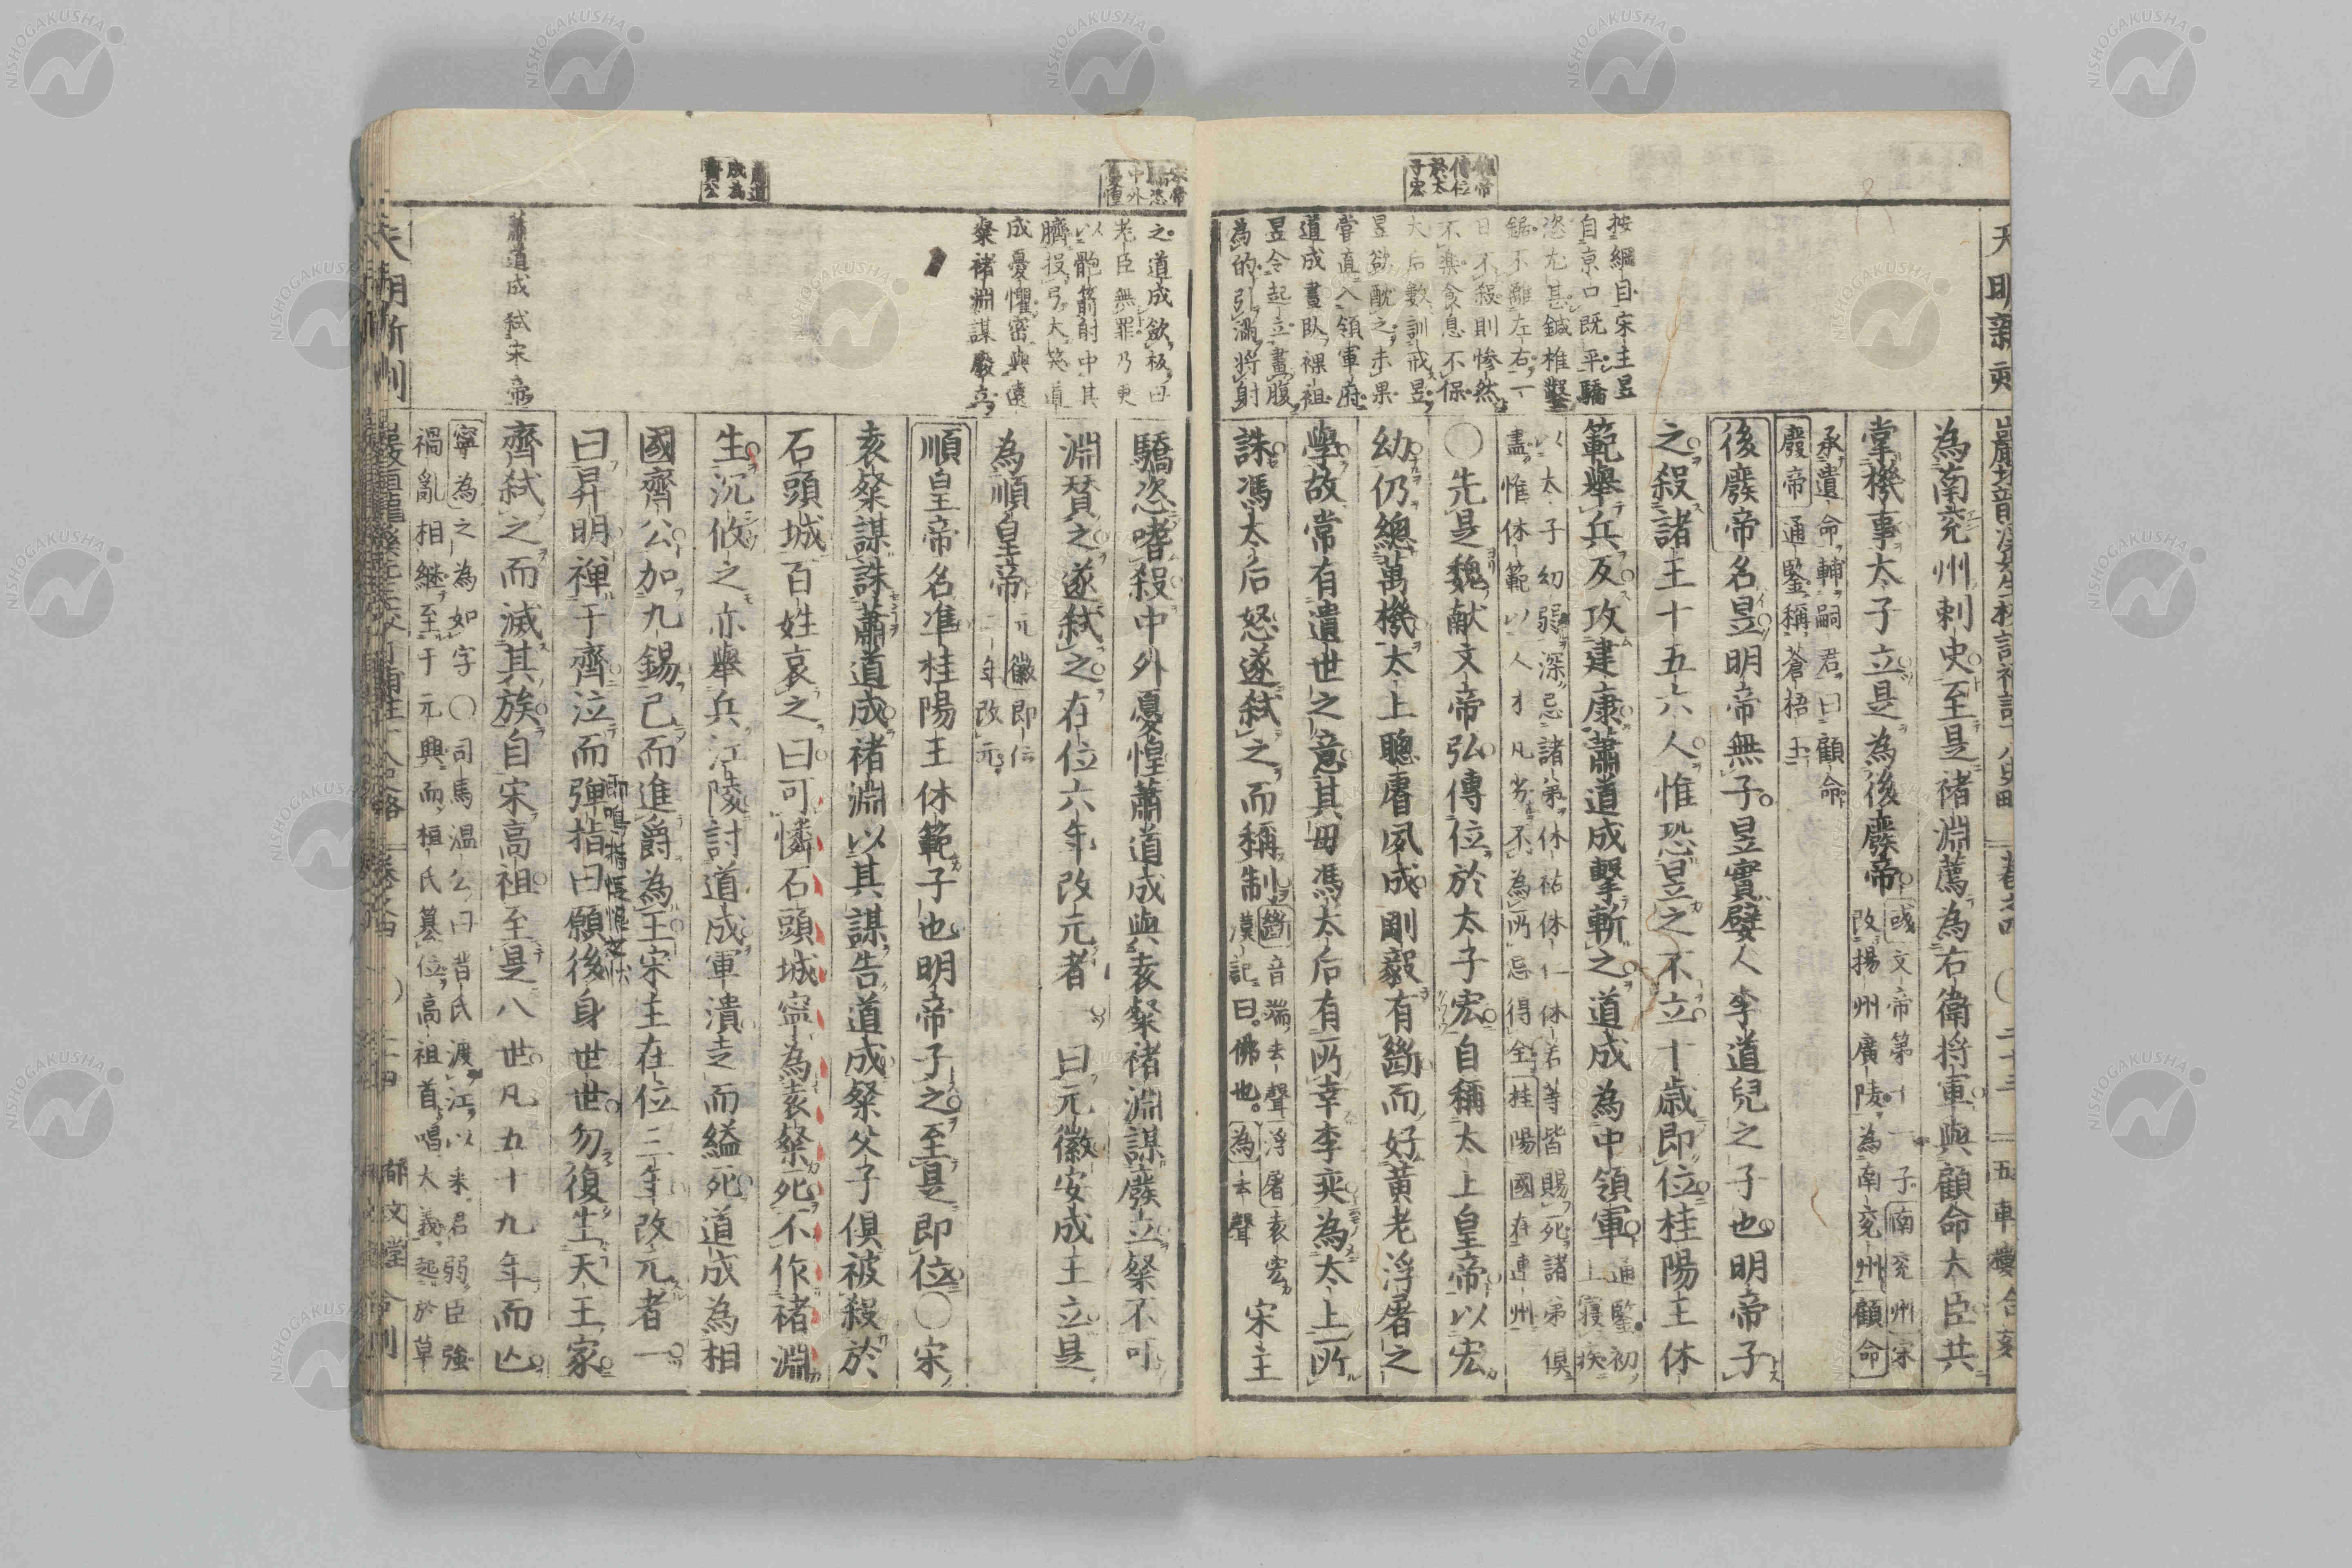 為南兖州刺史至是褚淵薦為右衛將軍與顧命大臣共
掌機事太子立是為後廢帝
彧文帝第十一子南兖州宋
改揚州廣陵為南兖州顧命
承遺命輔嗣君曰顧命
廢帝通鑒稱蒼梧王
後廢帝名昱明帝無子昱實嬖人李道兒之子也明帝子
之殺諸王十五六人惟恐昱之不立十歳即位桂陽王休
範舉兵反攻建康蕭道成擊斬之道成為中領軍
通鑒初
上寝疾
以太子幼弱深忌諸弟休祐休仁休若等皆賜死諸弟倶
盡惟休範以人才凡劣不為所忌得全桂陽國在連州
〇先是魏献文帝弘傳位於太子宏自稱太上皇帝以宏
幼仍總萬機太上聰睿夙成剛毅有斷而好黄老浮屠之
學故常有遺世之意其母馮太后有所幸李奕為太上所
誅馮太后怒遂弑之而稱制
斷音端去聲浮屠袁宏
漢記曰佛也為去聲
宋主
按綱目宋主昱
自京口既平驕
恣尤甚鍼椎鑿
鋸不離左右一
日不殺則惨然
不樂食息不保
太后數訓戒昱
昱欲酖之未果
嘗直入領軍府
道成晝臥裸袒
昱令起立畫腹
為的引滿將射
驕恣嗜殺中外憂惶蕭道成與袁粲褚淵謀廢立粲不可
淵賛之遂弑之在位六年改元者一曰元徽安成王立是
為順皇帝
元徽即位
二年改元
順皇帝名準桂陽王休範子也明帝子之至是即位〇宋
袁粲謀誅蕭道成褚淵以其謀告道成粲父子倶被殺於
石頭城百姓哀之曰可憐石頭城寧為袁粲死不作褚淵
生沉攸之亦舉兵江陵討道成軍潰走而縊死道成為相
國齊公加九錫已而進爵為王宋主在位二年改元者一
曰昇明禅于齊泣而弾指曰願後身世世勿復生天王家
齊弑之而滅其族自宋高祖至是八世凡五十九年而亡
寧為之為如字〇司馬温公曰昔氏渡江以来君弱臣強
禍亂相継至于元興而桓氏簒位高祖首唱大義起於草
之道成歛板曰
老臣無罪乃更
以骲箭射中其
臍投弓大笑道
成憂懼密與袁
粲褚淵謀廢立
蕭道成弑宋帝